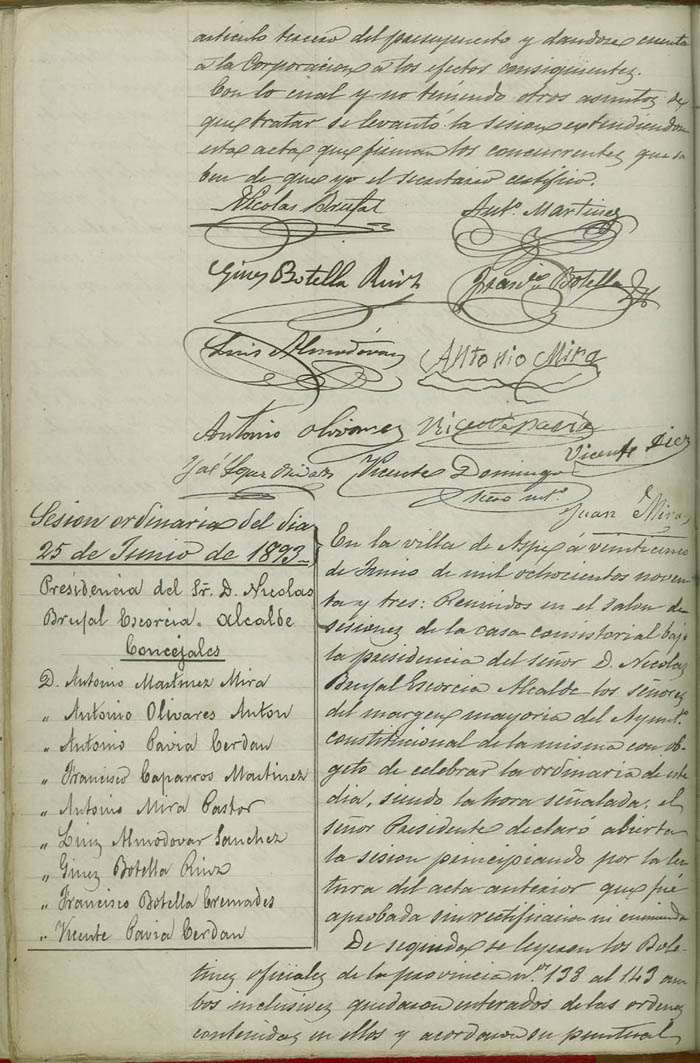 artículo tercero del presupuesto y dandose cuenta
á la Corporacion á los efectos consiguientes.
Con lo cual y no teniendo otros asuntos de
que tratar se levantó la sesion extendiendose
esta acta que firman los concurrentes que sa
ben de que yo el secretario certifico.
Nicolás Brufal
Antº Martinez
Gines Botella Ruiz
Francisco Botella
Luis Almodóvar
Antonio Mira
Antonio Olivares
Vicente Pavía
Vicente Diez
José Lopez
Vicente Domingo
Juan Mira
Sesion ordinaria del dia
25 de Junio de 1893
Presidencia del Sr. D. Nicolas
Brufal Escorcia. Alcalde
Concejales
D. Antonio Martinez Mira
„ Antonio Olivares Anton
„ Antonio Pavia Cerdan
„ Francisco Caparros Martinez
„ Antonio Mira Pastor
„ Luiz Almodovar Sanchez
„ Ginez Botella Ruiz
„ Francisco Botella Cremades
„ Vicente Pavia Cerdan
En la villa de Aspe á veinticinco
de Junio de mil ochocientos noven
ta y tres: Reunidos en el salon de
sesiones de la casa consistorial bajo
la presidencia del señor D. Nicolas
Brufal Escorcia Alcalde los señores
del margen mayoria del Ayuntº
constitucional de la misma con ob-
geto de celebrar la ordinaria de este
dia, siendo la hora señalada, el
señor Presidente declaró abierta
la sesion principiando por la lec
tura del acta anterior que fué
aprobada sin rectificacion ni enmienda
De seguida se leyeron los Bole-
tines oficiales de la provincia nos 138 al 143 am
bos inclusives quedaron enterados de las ordenes
contenidas en ellos y acordaron su puntual